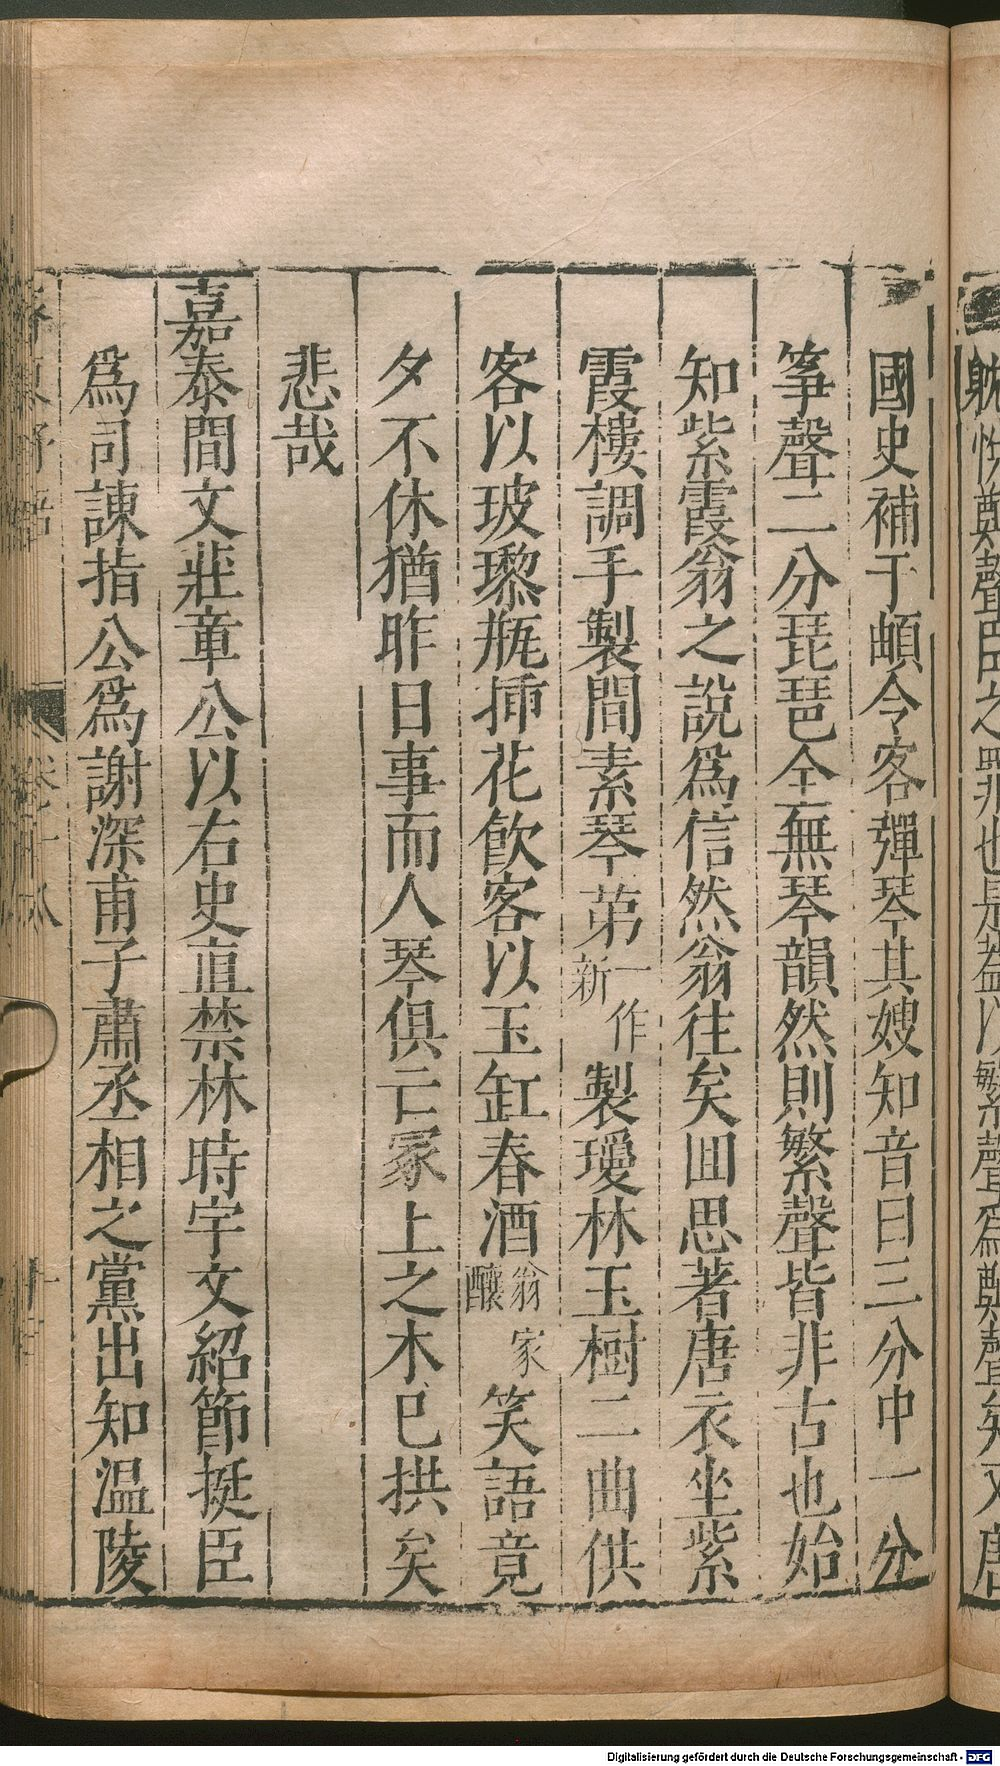 躭悅鄭聲臣之罪也是蓋以繁聲爲鄭聲矣又唐
國史補于頔令客彈琴其嫂知音曰三分中一分
筝聲二分琵琶全無琴韻然則繁聲皆非古也始
知紫霞翁之說爲信然翁往矣囬思著唐衣坐紫
霞樓調手製閒素琴第一新作製瓊林玉樹二曲供
客以玻瓈瓶揷花飲客以玉缸春酒翁家釀笑語竟
夕不休猶昨日事而人琴俱亡冢上之木已拱矣
悲哉
嘉泰間文莊章公以右史直禁林時宇文紹節挺臣
爲司諫指公爲謝深甫子肅丞相之黨出知溫陵
卷十八
Digitalisierung gefördert durch die Deutsche Forschungsgemeinschaft - DFG